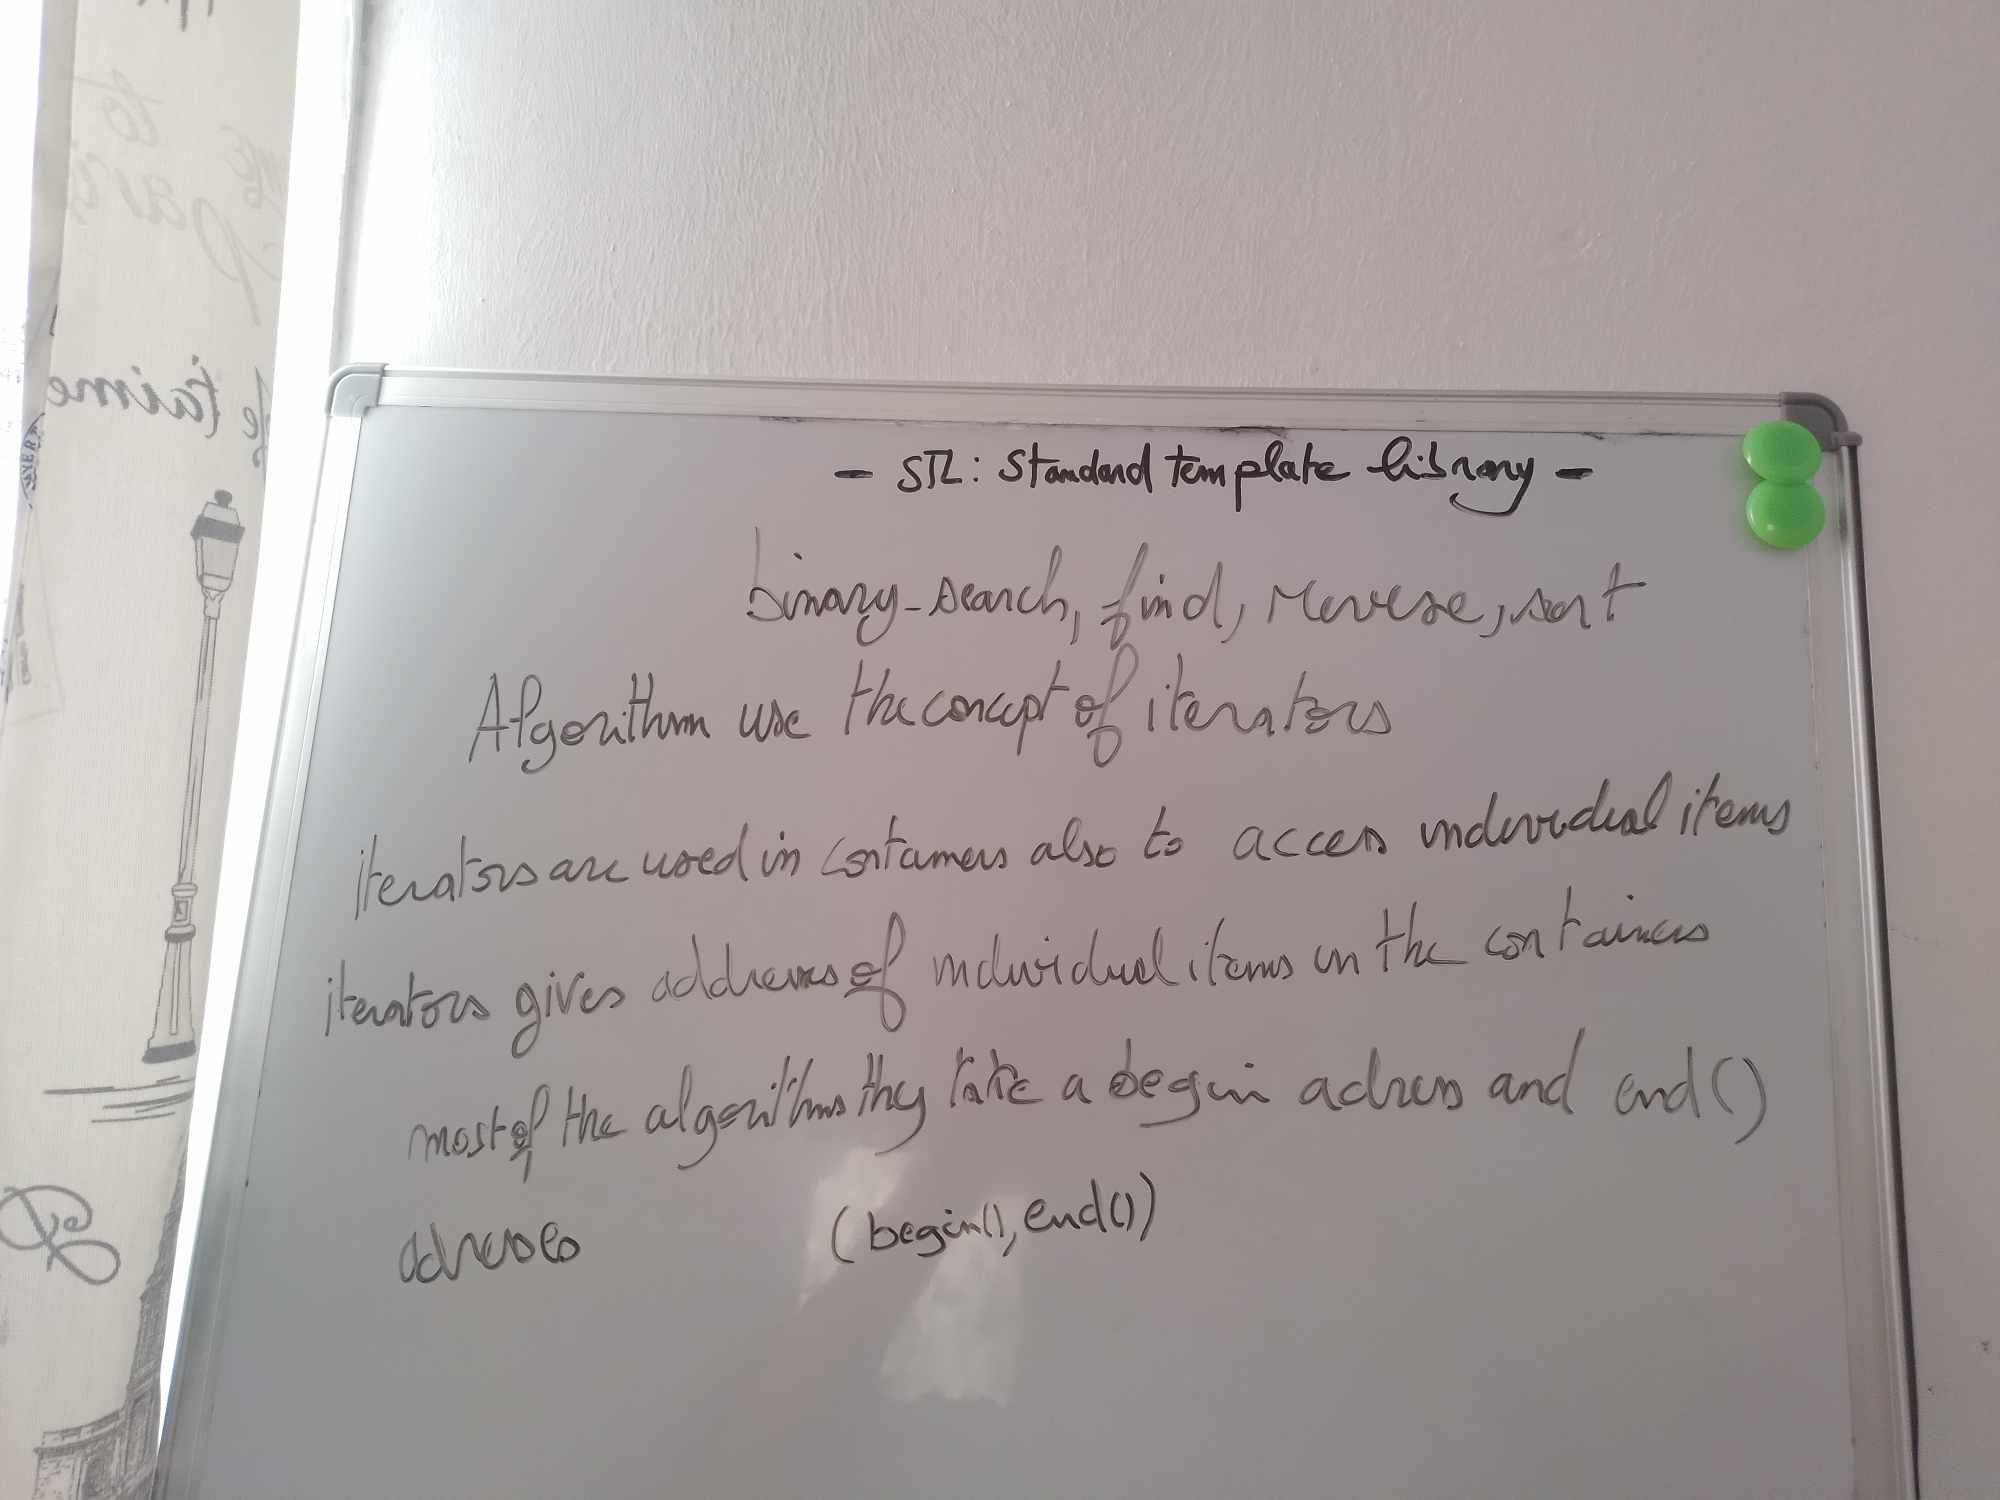 to
me
paris
Je t'aime
- STL: Standard template library -
binary-search, find, reverse, sort
Algorithm use the concept of iterators
iterators are used in containers also to acces individual items
iterators gives addresses of individual items in the containers
most of the algorithms they take a begin adress and end()
adresses (begin(), end())